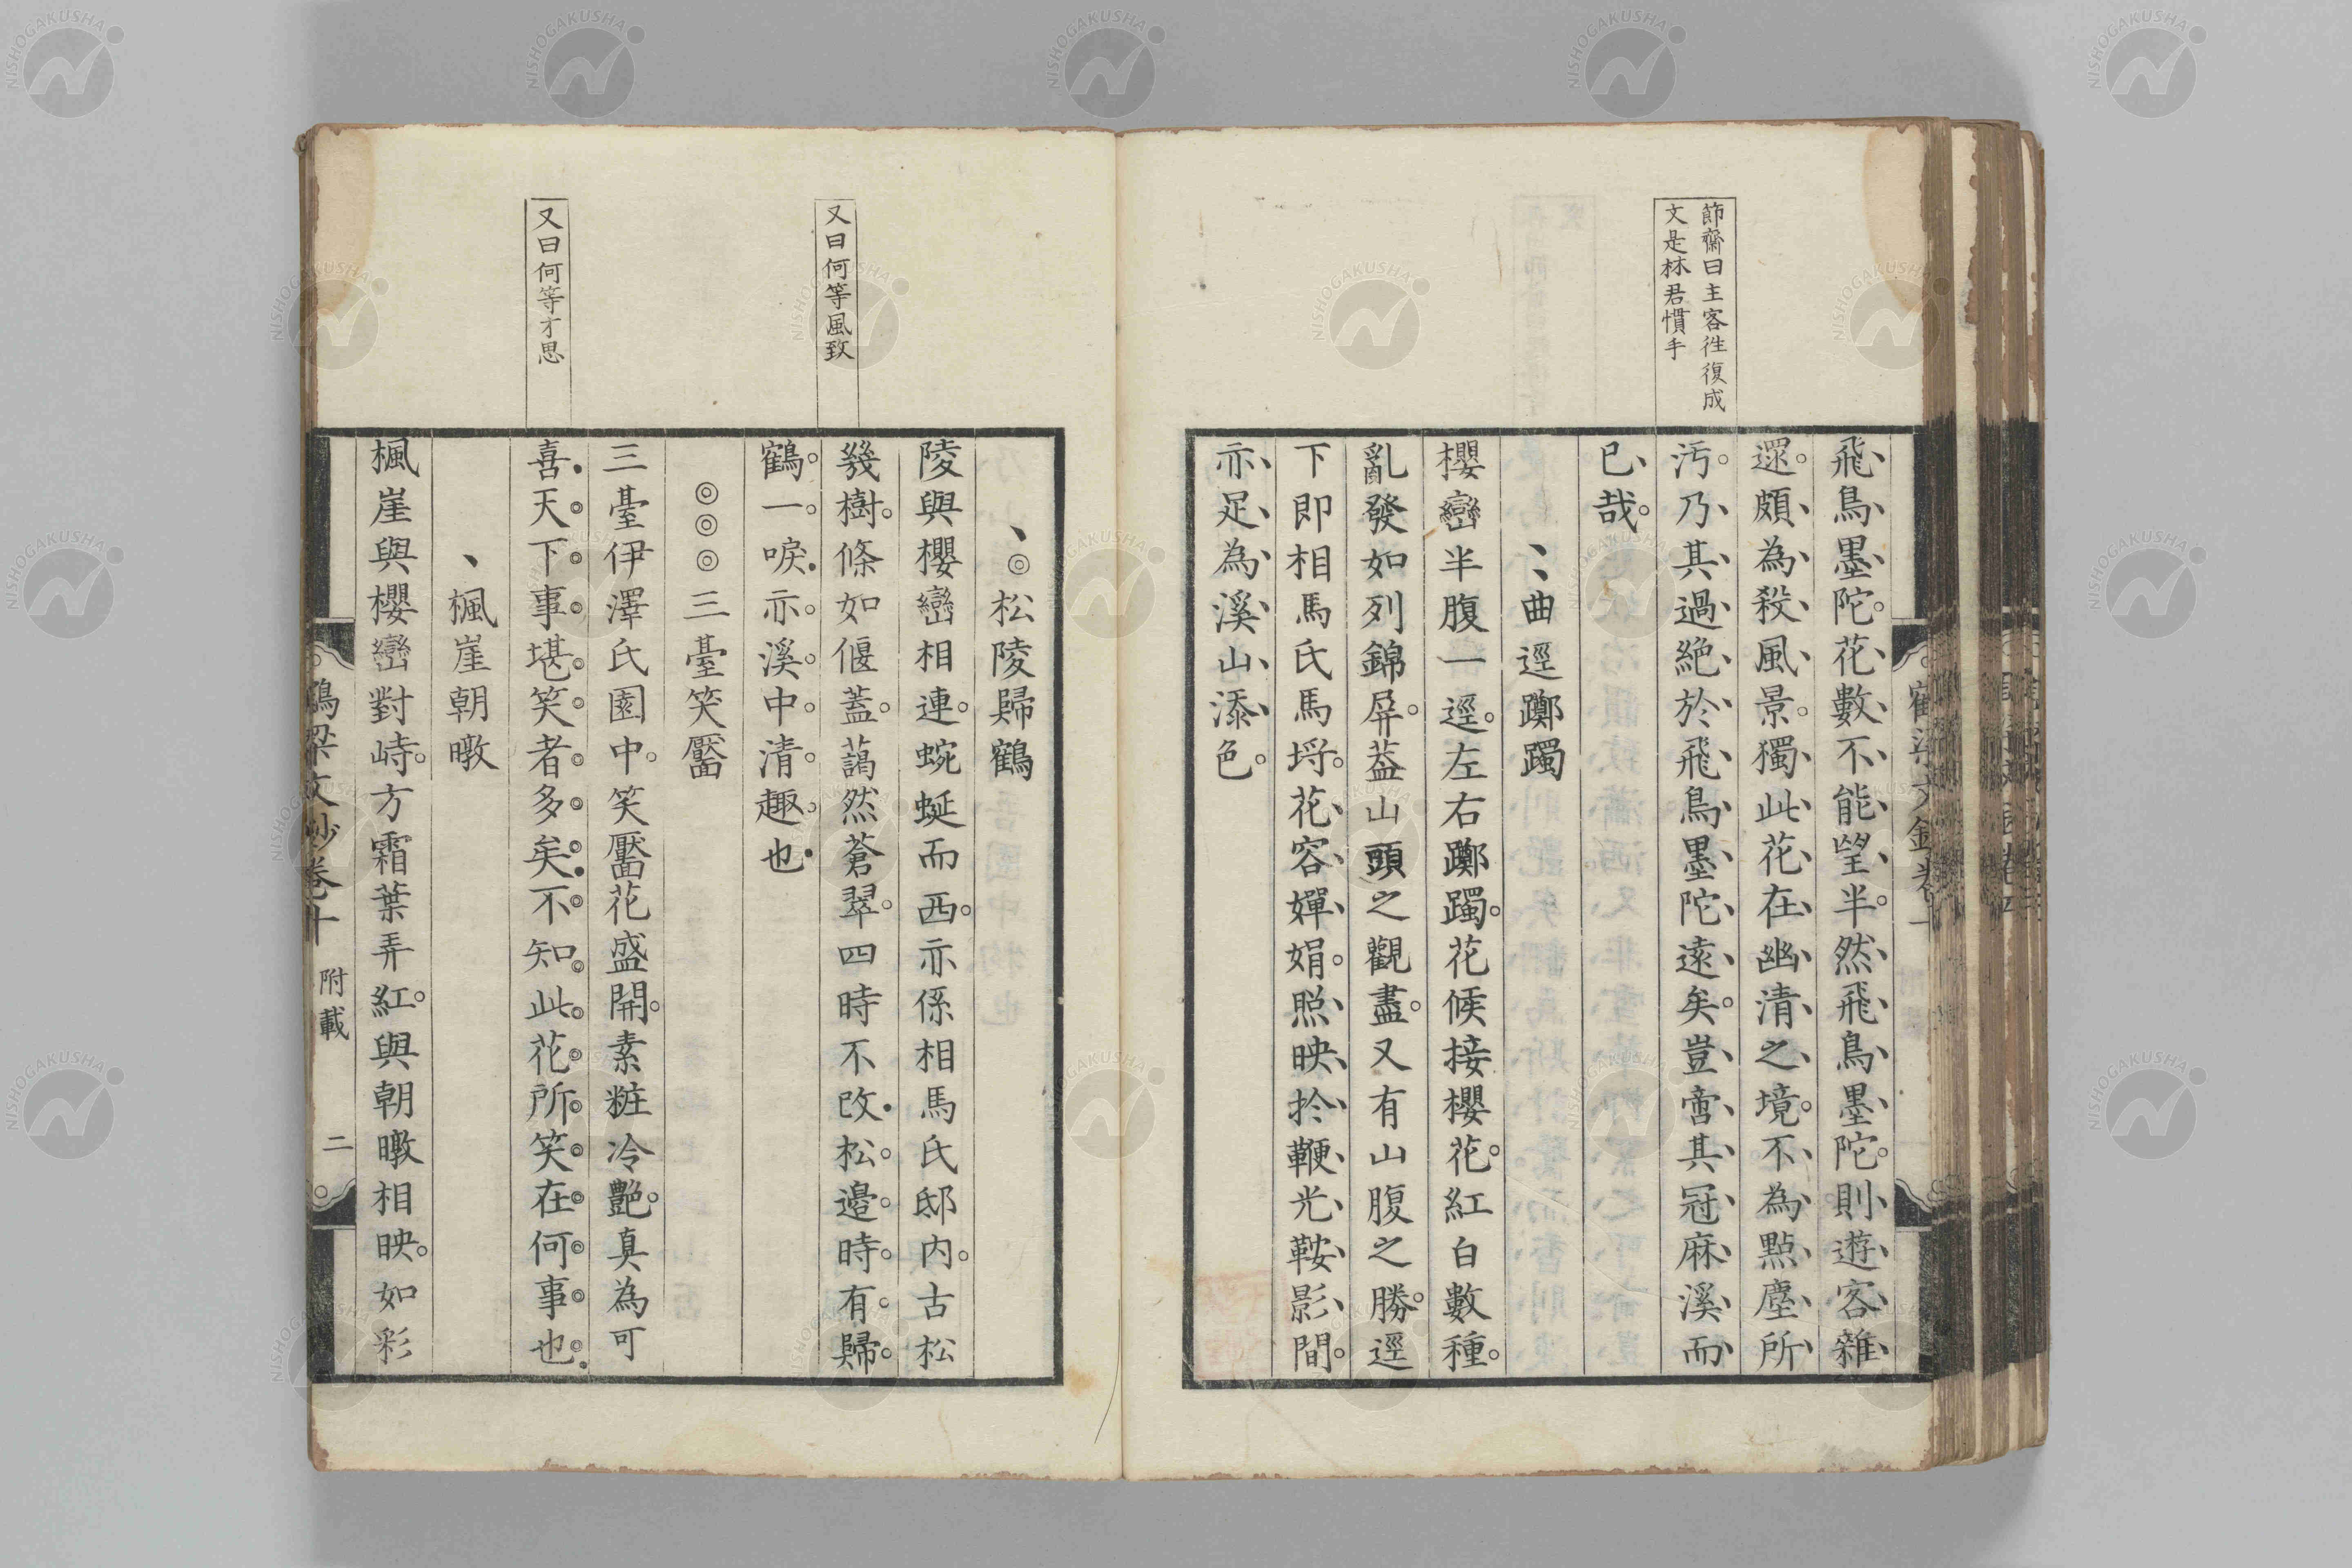 節齋曰主客徃復成
文是林君慣手
飛鳥墨陀。花數不能望半。然飛鳥墨陀。則遊客雜
遝。頗為殺風景。獨此花在幽清之境。不為點塵所
汚。乃其過絶於飛鳥墨陀遠矣。豈啻其冠麻溪而
已哉。
曲逕躑躅
櫻巒半腹一逕。左右躑躅。花候接櫻花。紅白數種。
亂發如列錦屏。葢山頭之觀盡。又有山腹之勝。逕
下即相馬氏馬埒。花容嬋娟。照映於鞭光鞍影間。
亦足為溪山添色。
又曰何等風致
又曰何等才思
松陵歸鶴
陵與櫻巒相連。蜿蜒而西。亦係相馬氏邸内。古松
幾樹。條如偃蓋。藹然蒼翠。四時不改。松邉時有歸
鶴一唳。亦溪中清趣也
三臺笑靨
三臺伊澤氏園中。笑靨花盛開。素粧冷艷。真為可
喜。天下事堪笑者多矣。不知此花所笑在何事也。
楓崖朝暾
楓崖與櫻巒對峙。方霜葉弄紅。與朝暾相映。如彩
鶴梁文鈔卷十 附載 二
NISHOGAKUSHA